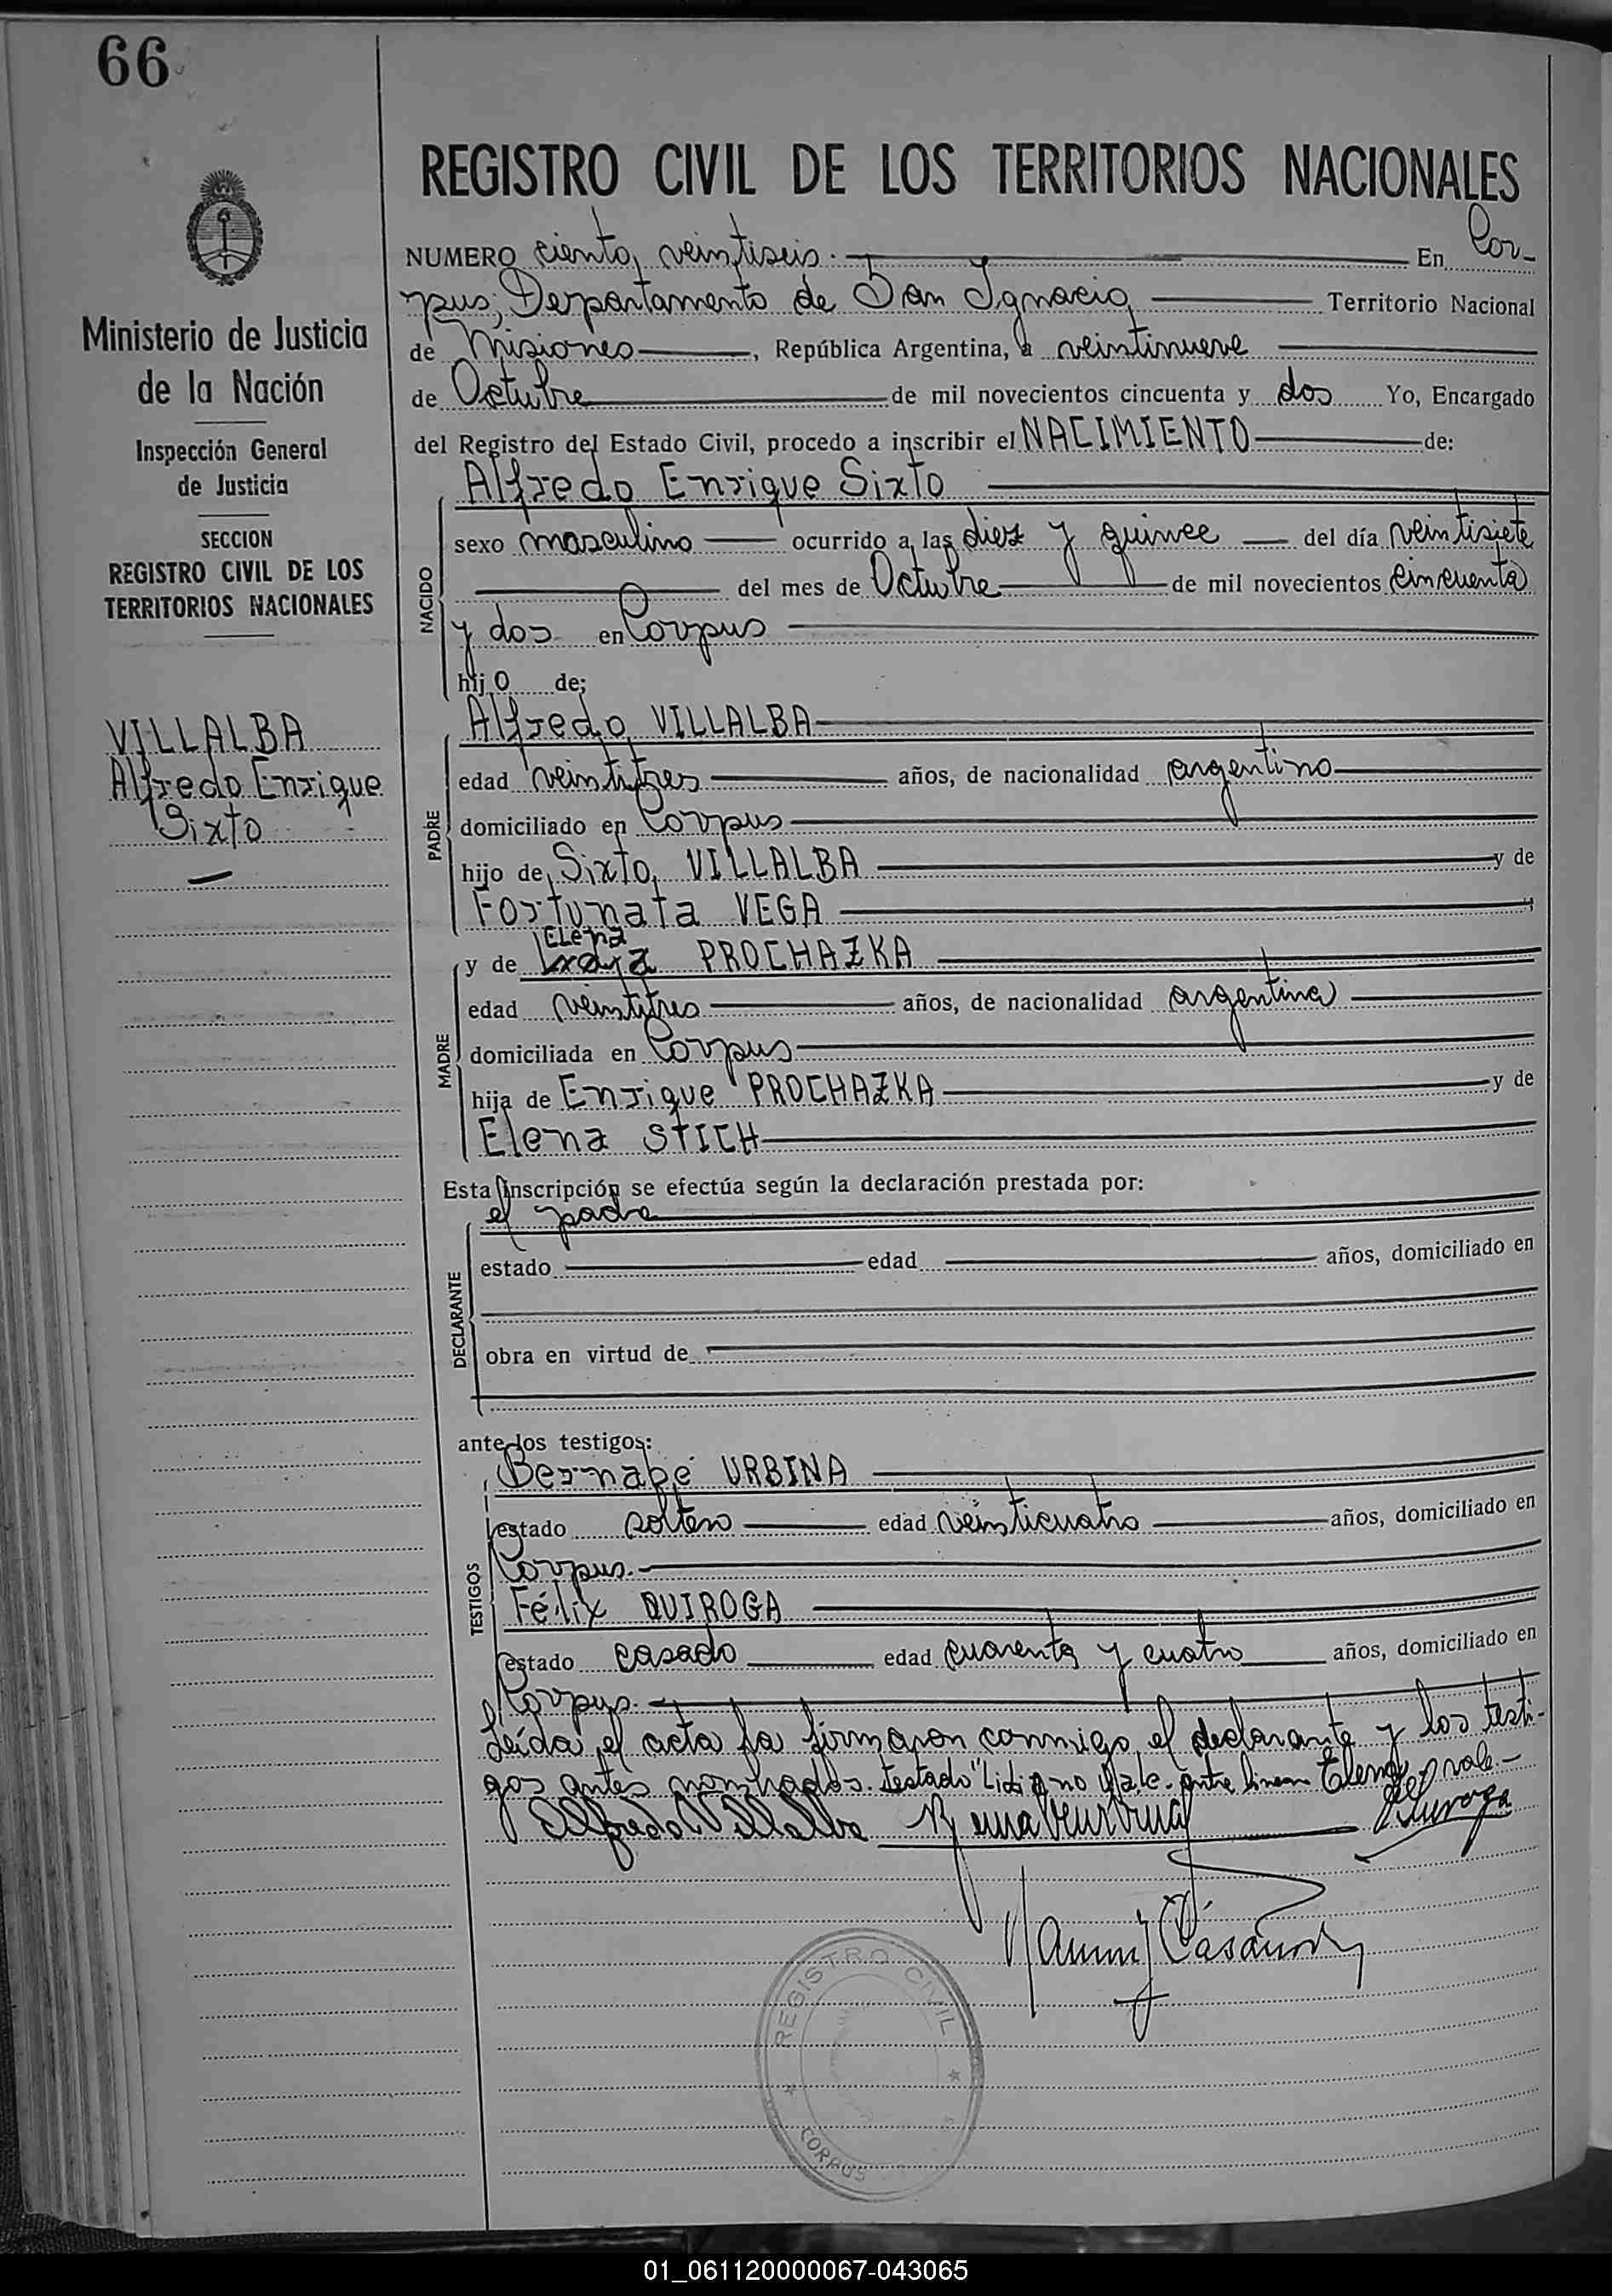 66
REGISTRO CIVIL DE LOS TERRITORIOS NACIONALES
NUMERO ciento veintiseis. En Cor-
pus, Departamento de San Ignacio, Territorio Nacional
de Misiones, República Argentina, a veintinueve
de Octubre de mil novecientos cincuenta y dos Yo, Encargado
del Registro del Estado Civil, procedo a inscribir el NACIMIENTO de:
Ministerio de Justicia
de la Nación
Inspección General
de Justicia
SECCION
REGISTRO CIVIL DE LOS
TERRITORIOS NACIONALES
VILLALBA
Alfredo Enrique
Sixto
NACIDO
Alfredo Enrique Sixto
sexo masculino ocurrido a las diez y quince del día veintisiete
del mes de Octubre de mil novecientos cincuenta
y dos en Corpus
hijo de;
PADRE
Alfredo VILLALBA
edad veintitres años, de nacionalidad argentino
domiciliado en Corpus
hijo de Sixto VILLALBA y de
Fortunata VEGA
MADRE
Elena
y de PROCHAZKA
edad veintitres años, de nacionalidad argentina
domiciliada en Corpus
hija de Enrique PROCHAZKA y de
Elena STICH
Esta inscripción se efectúa según la declaración prestada por:
DECLARANTE
el padre
estado edad años, domiciliado en
obra en virtud de
ante los testigos:
TESTIGOS
Bernabé URBINA
estado soltero edad veinticuatro años, domiciliado en
Corpus.
Félix QUIROGA
estado casado edad cuarenta y cuatro años, domiciliado en
Corpus.
Leída el acta la firmaron conmigo, el declarante y los testi-
gos antes nombrados. Testado "Lidia no vale. entre lineas Elena, vale.-
Alfredo Villalba Quiroga
REGISTRO CIVIL
CORPUS
01_061120000067-043065